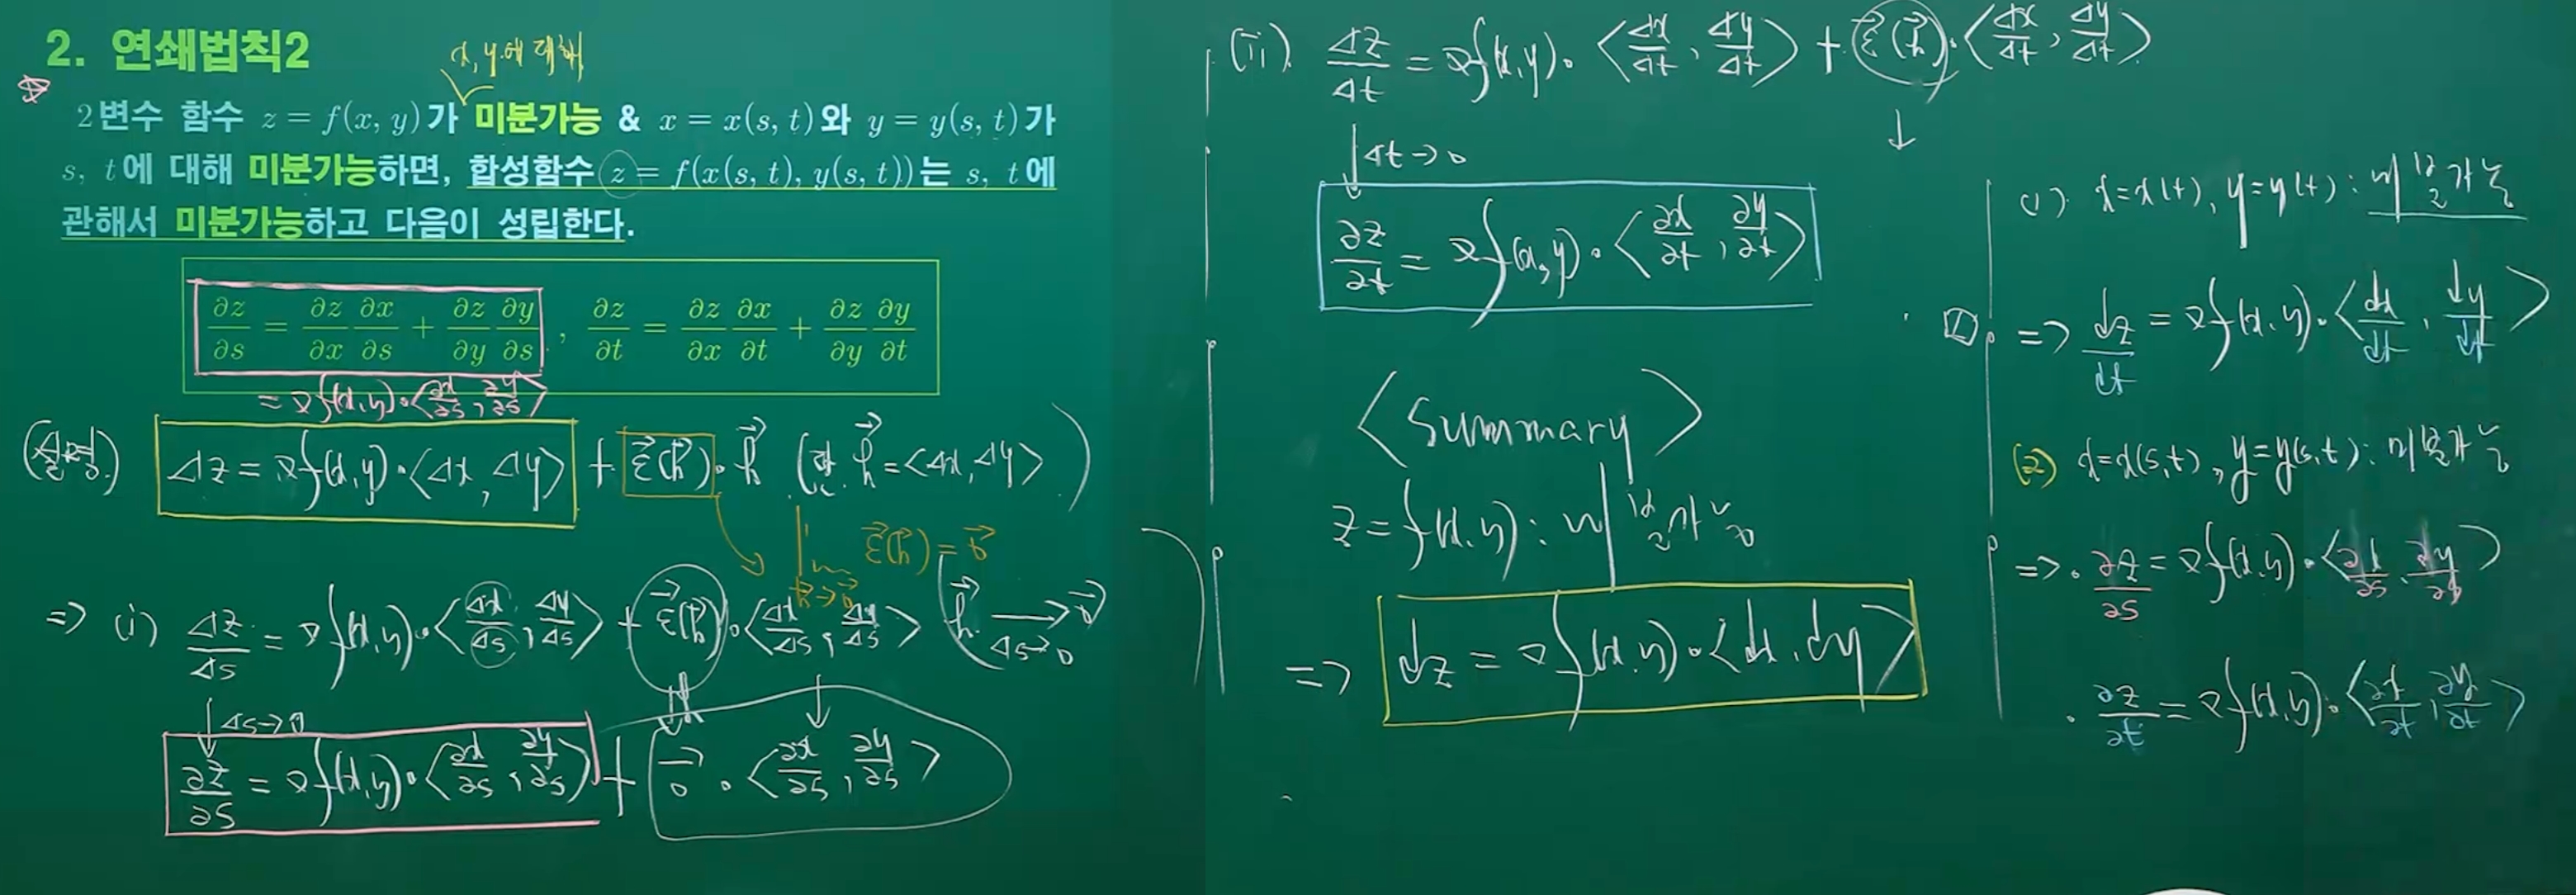 2. 연쇄법칙2
x, y에 대해
2변수 함수 z = f(x, y)가 미분가능 & x = x(s, t)와 y = y(s, t)가
s, t에 대해 미분가능하면, 합성함수 z = f(x(s, t), y(s, t))는 s, t에
관해서 미분가능하고 다음이 성립한다.
∂z/∂s = ∂z/∂x ∂x/∂s + ∂z/∂y ∂y/∂s , ∂z/∂t = ∂z/∂x ∂x/∂t + ∂z/∂y ∂y/∂t
= ∇f(x,y)·<∂x/∂s, ∂y/∂s>
Δz = ∇f(x,y)·<Δx, Δy> + ε⃗(h⃗)·h⃗ (단, h⃗ = <Δx, Δy>)
lim h⃗→0⃗ ε⃗(h⃗) = 0⃗
=> (i) Δz/Δs = ∇f(x,y)·<Δx/Δs, Δy/Δs> + ε⃗(h⃗)·<Δx/Δs, Δy/Δs> (h⃗ → 0⃗ Δs→0)
↓ Δs→0
∂z/∂s = ∇f(x,y)·<∂x/∂s, ∂y/∂s> + 0⃗·<∂x/∂s, ∂y/∂s>
(ii) Δz/Δt = ∇f(x,y)·<Δx/Δt, Δy/Δt> + ε⃗(h⃗)·<Δx/Δt, Δy/Δt>
↓ Δt→0 ↓
∂z/∂t = ∇f(x,y)·<∂x/∂t, ∂y/∂t>
<Summary>
z = f(x,y) : 미분가능
=> dz = ∇f(x,y)·<dx, dy>
(1) x=x(t), y=y(t) : 미분가능
=> dz/dt = ∇f(x,y)·<dx/dt, dy/dt>
(2) x=x(s,t), y=y(s,t) : 미분가능
=> · ∂z/∂s = ∇f(x,y)·<∂x/∂s, ∂y/∂s>
· ∂z/∂t = ∇f(x,y)·<∂x/∂t, ∂y/∂t>